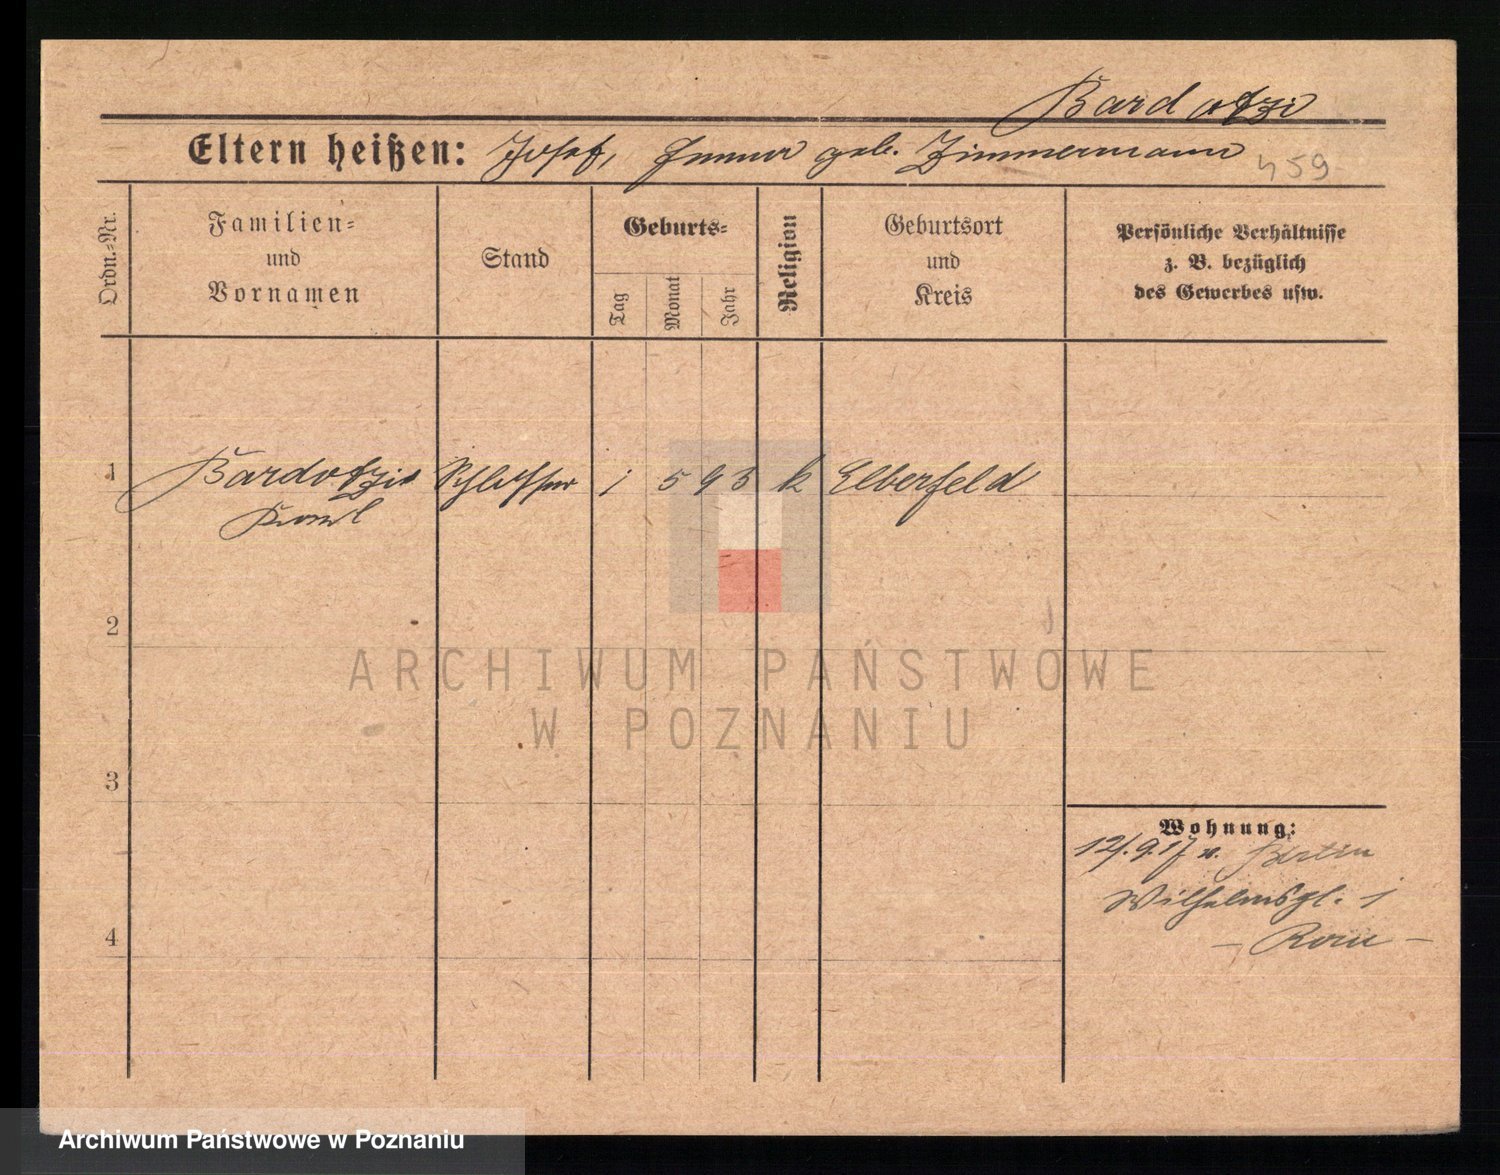 Bardotzi
Eltern heißen: Josef, geb. Zimmermann
459
Ordn.-Nr.
Familien-
und
Vornamen
Stand
Geburts-
Tag
Monat
Jahr
Religion
Geburtsort
und
Kreis
Persönliche Verhältnisse
z. B. bezüglich
des Gewerbes usw.
1 Bardotzi Schlosser 1 5 93 k Elberfeld
Karl
2
3
4
Wohnung:
12/.9.17 v. Berlin
Wilhelmspl. 1
ARCHIWUM PAŃSTWOWE
W POZNANIU
Archiwum Państwowe w Poznaniu